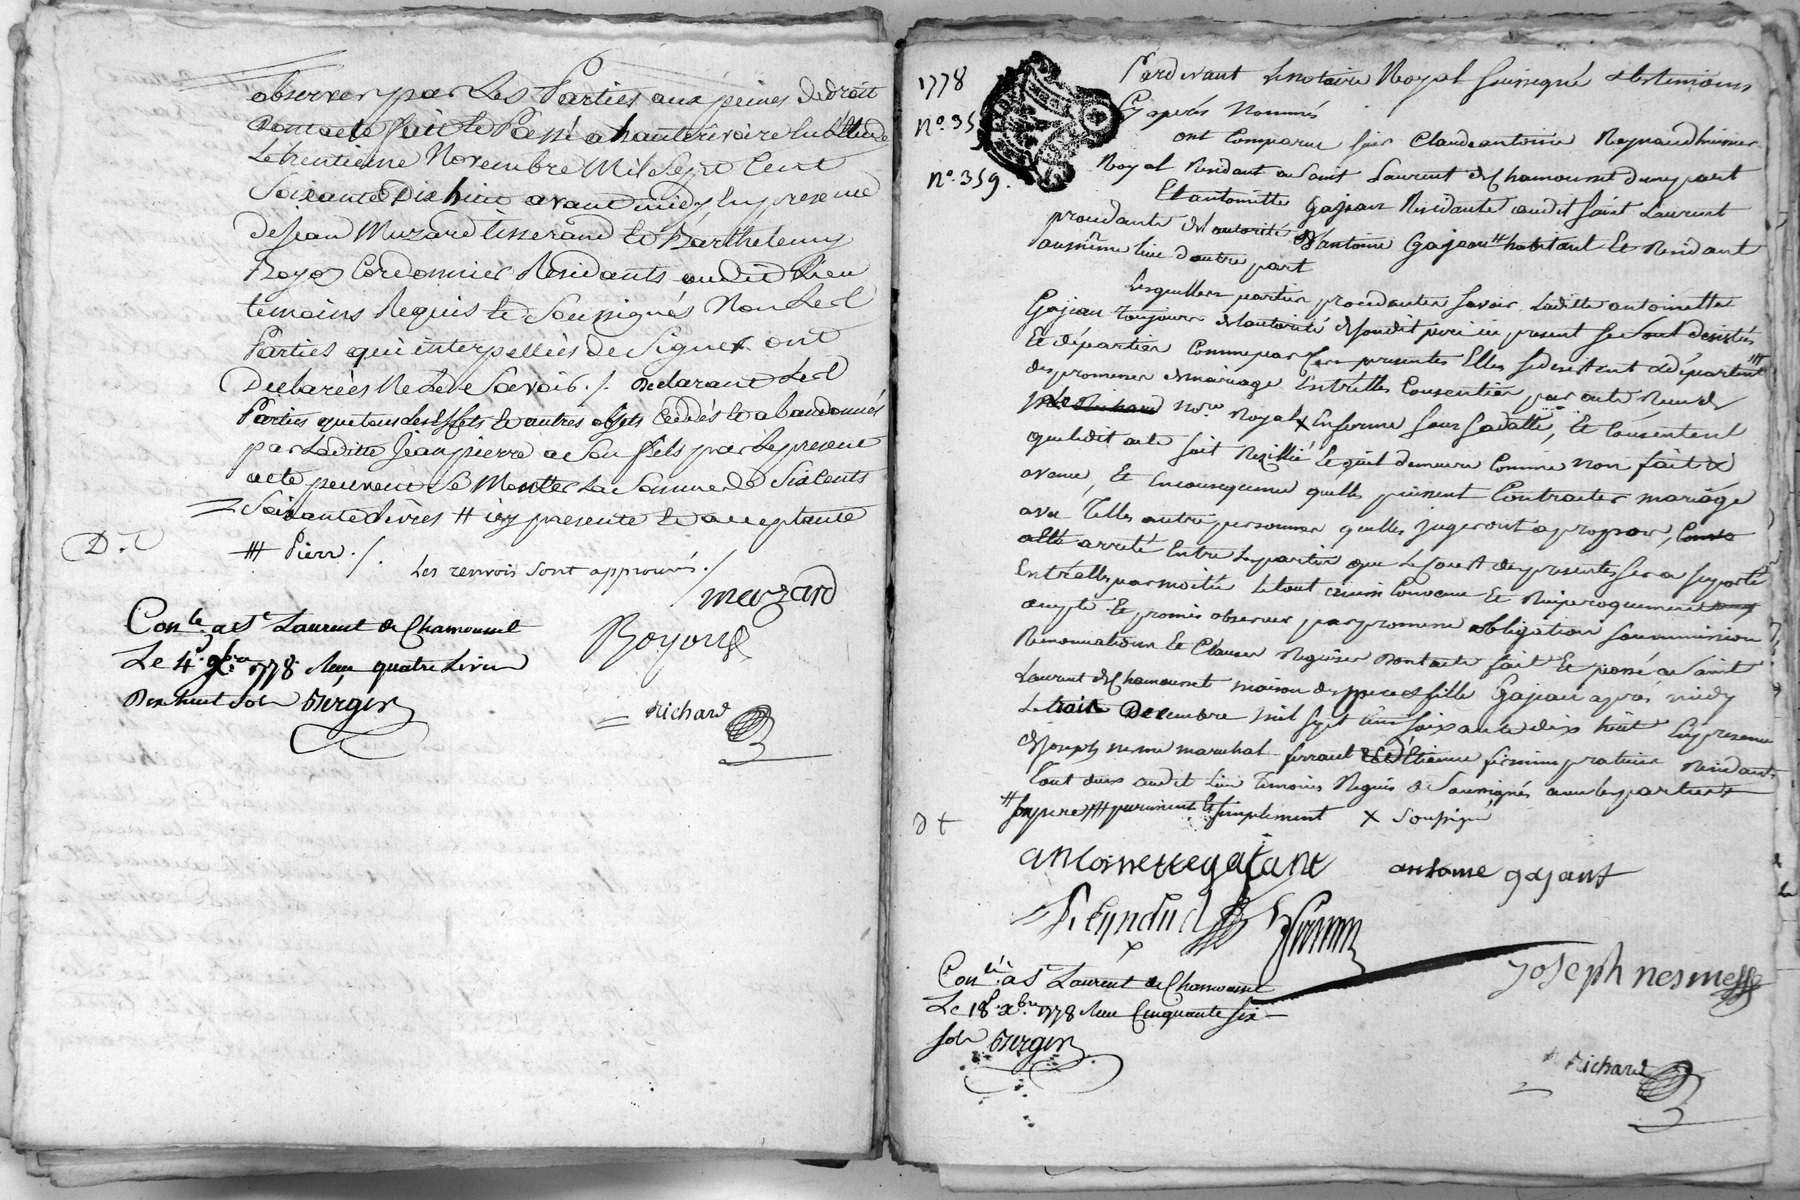 observer par Les Parties aux peines de droit
Dont acte fait et Passé a hauterivoire lieu
Le trentieme Novembre Mil Sept Cent
Soixante Dix huit avant midy En presence
De Jean Muzard tisserand et Barthelemy
Royon Cordonnier Residants audit Lieu
temoins Requis et Soussignés Non Les d
Parties qui interpellées de Signer ont
Declarées Ne Le Sçavoir ./. Declarant Les d
Parties que tous Les Effets et autres objets Cédés et abandonnés
par Laditte Jean pierre a Son fils par Le present
acte peuvent Se Monter La Somme de Six Cents
Soixante Livres # icy presente et acceptante
D. t
# Pierr ./.
Les renvois sont approuvés ./
muzard
Con.le a St Laurent de Chamousset
Le 4e xbre 1778 Reçu quatre Livres
Dix huit Sols Berger
Royon
Richard
1778
N.o 35
N.o 359.
Pardevant Le notaire Royal Soussigné et les temoins
Cy après Nommés
ont Comparu Sieur Claude antoine Reynaud huissier
Royal Residant a Saint Laurent de Chamousset d'une part
Et antoinette Gajean Residante audit Saint Laurent
procedante de l'autorité d'antoine Gajean # habitant Et Residant
au même lieu d'autre part
Lesquelles parties procedantes Savoir Laditte antoinette
Gajean toujours de l'autorité de Sondit pere icy present se Sont desistées
Et départies Comme par Ces presentes Elles se desistent et départent #
des promesses de mariage Entr'elles Consenties par acte Reçu
par Me Richard No.re Royal x En forme Sous Sa datte, Et Consentent
que ledit acte Soit Resillié Et qu'il demeure Comme Non fait &
avenu, Et En consequence qu'elles puissent Contracter mariage
avec Telles autres personnes qu'elles jugeront a propos,
arreté Entre Les parties que Le Coust des presentes Sera Supporté
Entr'elles par moitié Le tout ainsi Convenu Et Reciproquement
accepté Et promis observer par promesse obligation Soummission
Renonciations Et Clauses Requises Dont acte fait Et passé a Saint
Laurent de Chamousset maison des peres et fille Gajean après midy
Le trois Decembre mil Sept Cens Soixante dix huit En presence
de Joseph nesme marechal ferrant Et d'Etienne firmin praticien Residants
Tout deux audit Lieu Temoins Requis & Soussignés avec les parties
# Son pere # purement Et Simplement x Soussigné
D t
antoinette gajant
antoine gajant
Reynaud
firmin
Joseph nesme
Con.lé a St Laurent de Chamousset
Le 18e xbre 1778 Reçu Cinquante Six
Sols Berger
Richard